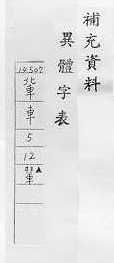 補充資料
異體字表
14507
車
5
12